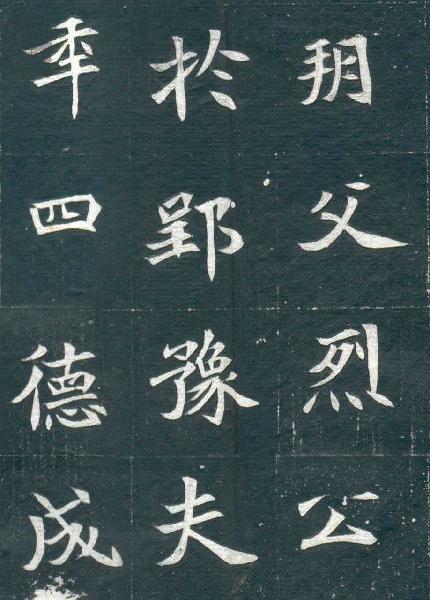 玥父烈公
於郢豫夫
年四德成